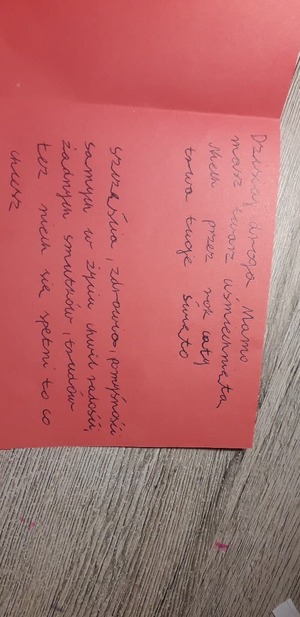 Dzisiaj droga Mamo
masz twarz uśmiechniętą
Niech przez rok cały
trwa twoje święto
szczęścia, zdrowia, pomyślności
samych w życiu chwil radości,
żadnych smutków, trudów
też niech się spełni to co
chcesz